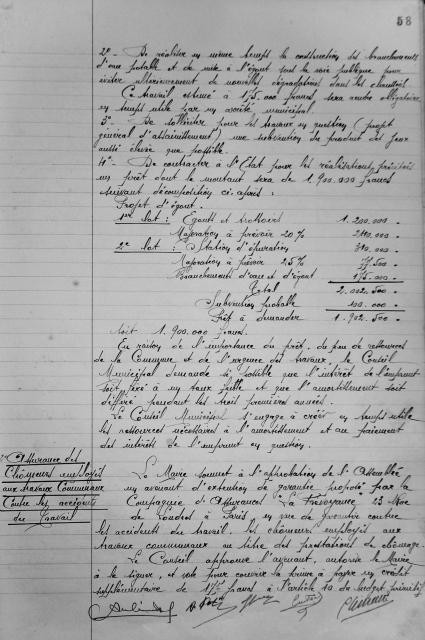 58
2° - De réaliser en même temps la construction des branchements
d'eau potable et de mise à l'égout sous la voie publique pour
éviter ultérieurement de nouvelles dégradations dans les chaussées.
Ce travail estimé à 175.000 francs, sera rendu obligatoire
en temps utile par un arrêté municipal.
3° - De solliciter pour les travaux en question (projet
général d'assainissement) une subvention du produit des Jeux
aussi élevée que possible.
4° - De contracter à l'Etat pour les réalisations précitées
un prêt dont le montant sera de 1.900.000 francs
suivant décomposition ci-après :
Projet d'égout.
1er lot : Egouts et trottoirs 1.200.000 -
Majoration à prévoir 20% 240.000 -
2e lot : Station d'épuration 310.000 -
Majoration à prévoir 25% 77.500 -
Branchements d'eau et d'égout 175.000 -
Total 2.002.500 -
Subvention probable 100.000 -
Prêt à demander 1.902.500 -
Soit 1.900.000 francs.
En raison de l'importance du prêt, du peu de ressources
de la Commune et de l'urgence des travaux, le Conseil
Municipal demande si possible que l'intérêt de l'emprunt
soit fixé à un taux faible et que l'amortissement soit
différé pendant les trois premières années.
Le Conseil Municipal s'engage à créer en temps utile
les ressources nécessaires à l'amortissement et au paiement
des intérêts de l'emprunt en question.
Assurance des
Chômeurs employés
aux travaux Communaux
Contre les accidents
du Travail
Le Maire soumet à l'approbation de l'Assemblée
un avenant d'extension de garantie proposé par la
Compagnie d'Assurances "La Prévoyance" 23 Rue
de Londres à Paris, en vue de garantir contre
les accidents du travail, les chômeurs employés aux
travaux communaux au titre des prestations de chômage.
Le Conseil approuve l'avenant, autorise le Maire
à le signer, et vote pour couvrir la prime à payer un crédit
supplémentaire de francs à l'article 10 du budget primitif